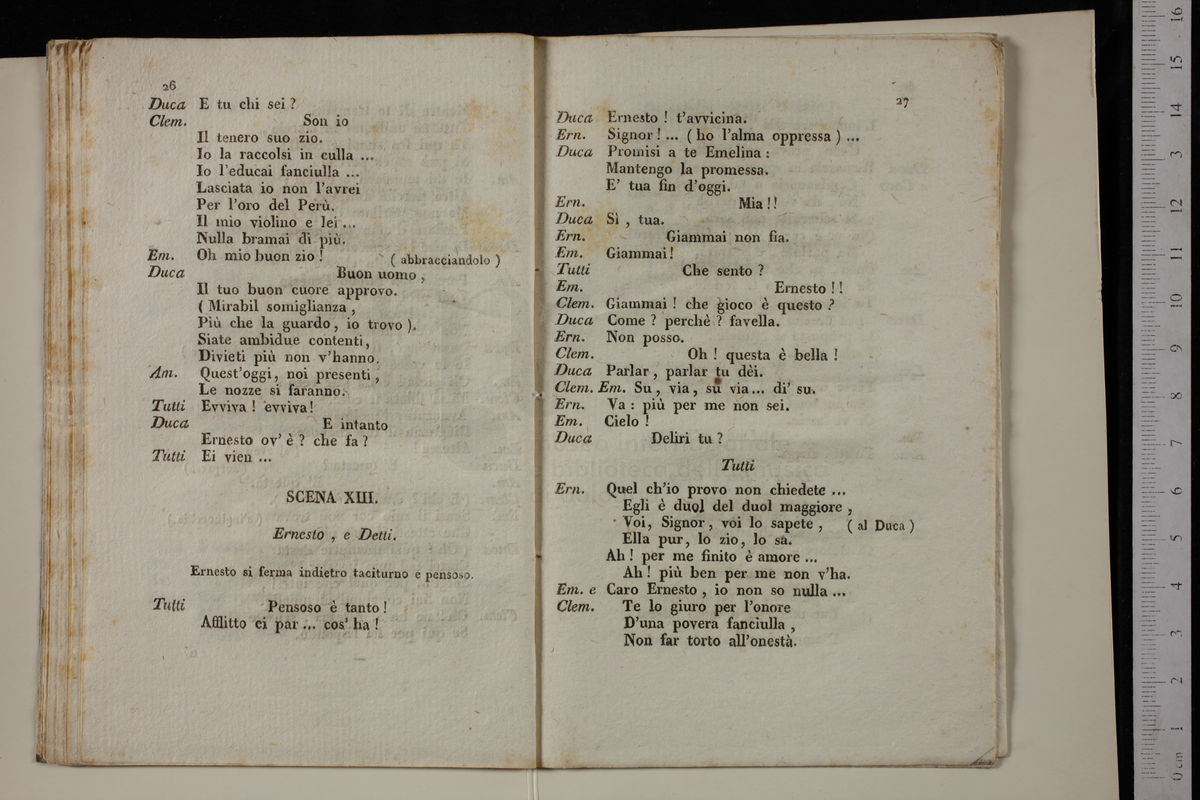 26
Duca E tu chi sei ?
Clem. Son io
Il tenero suo zio.
Io la raccolsi in culla ...
Io l'educai fanciulla ...
Lasciata io non l'avrei
Per l'oro del Perù.
Il mio violino e lei ...
Nulla bramai di più.
Em. Oh mio buon zio ! ( abbracciandolo )
Duca Buon uomo ,
Il tuo buon cuore approvo.
( Mirabil somiglianza ,
Più che la guardo , io trovo ).
Siate ambidue contenti,
Divieti più non v'hanno.
Am. Quest'oggi, noi presenti ,
Le nozze si faranno.
Tutti Evviva ! evviva !
Duca E intanto
Ernesto ov' è ? che fa ?
Tutti Ei vien ...
SCENA XIII.
Ernesto , e Detti.
Ernesto si ferma indietro taciturno e pensoso.
Tutti Pensoso è tanto !
Afflitto ci par ... cos' ha !
27
Duca Ernesto ! t'avvicina.
Ern. Signor ! ... ( ho l'alma oppressa ) ...
Duca Promisi a te Emelina :
Mantengo la promessa.
E' tua fin d'oggi.
Ern. Mia !!
Duca Sì , tua.
Ern. Giammai non fia.
Em. Giammai !
Tutti Che sento ?
Em. Ernesto ! !
Clem. Giammai ! che gioco è questo ?
Duca Come ? perchè ? favella.
Ern. Non posso.
Clem. Oh ! questa è bella !
Duca Parlar , parlar tu dèi.
Clem. Em. Su , via , su via ... di' su.
Ern. Va : più per me non sei.
Em. Cielo !
Duca Deliri tu ?
Tutti
Ern. Quel ch'io provo non chiedete ...
Egli è duol del duol maggiore ,
Voi, Signor , voi lo sapete , ( al Duca )
Ella pur, lo zio, lo sa.
Ah ! per me finito è amore ...
Ah ! più ben per me non v'ha.
Em. e Caro Ernesto , io non so nulla ...
Clem. Te lo giuro per l'onore
D'una povera fanciulla ,
Non far torto all'onestà.
0 cm 1 2 3 4 5 6 7 8 9 10 11 12 13 14 15 16